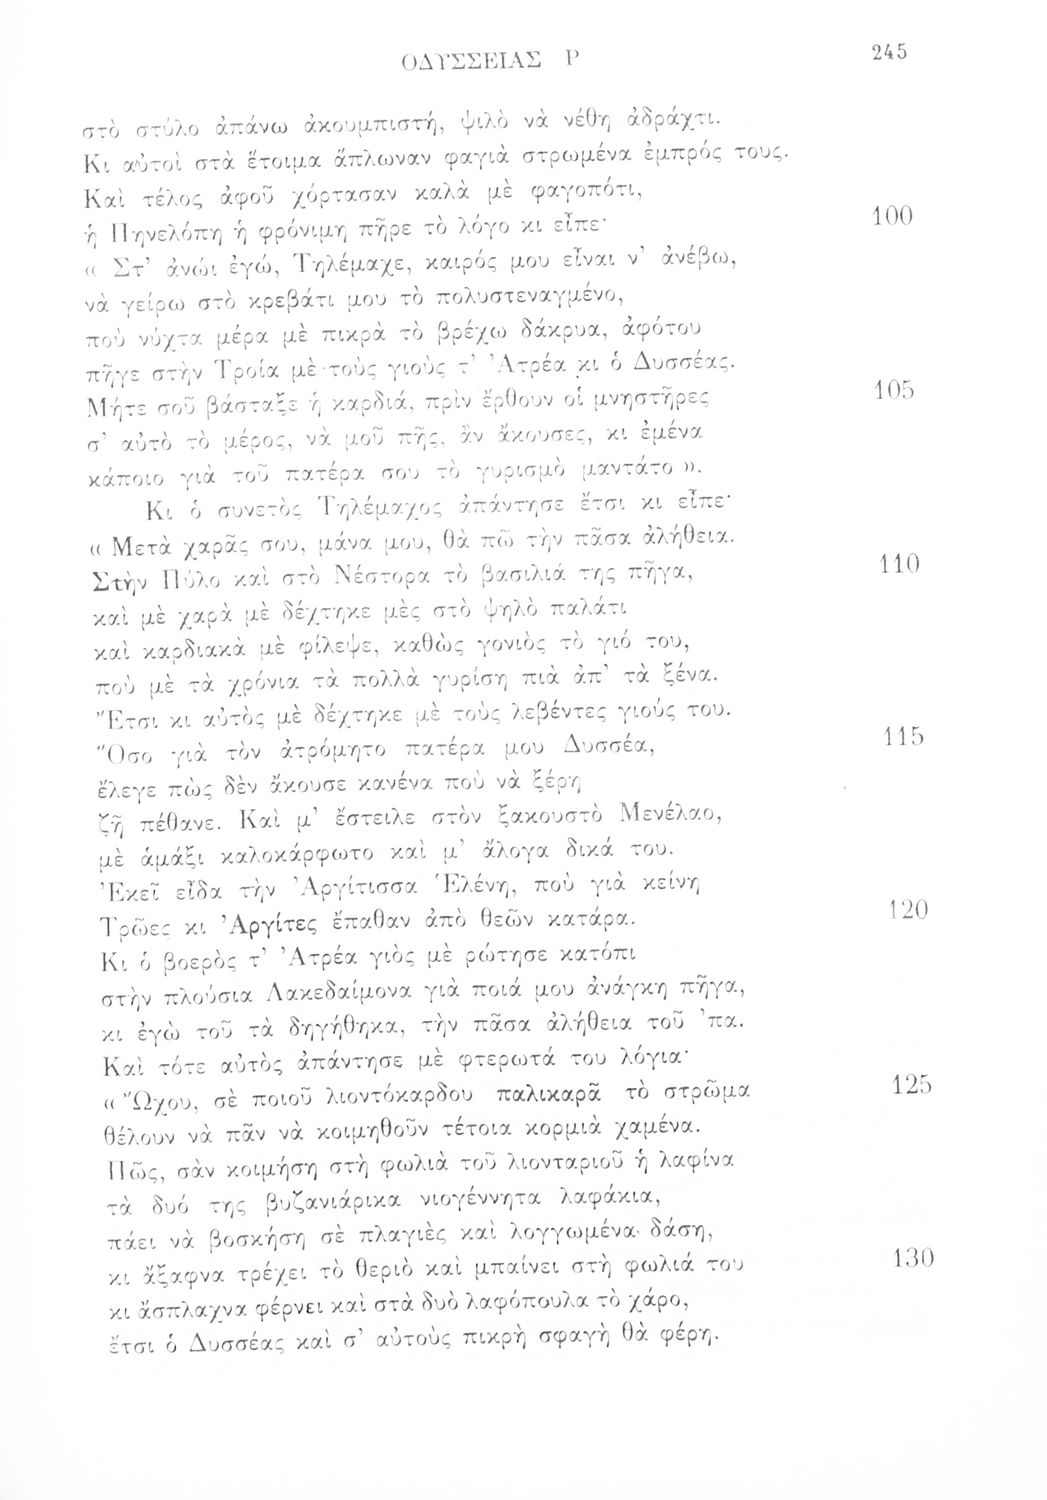 ΟΔΥΣΣΕΙΑΣ Ρ 245
στὸ στύλο ἀπάνω ἀκουμπιστή, ψιλὸ νὰ νέθη ἀδράχτι.
Κι αὐτοὶ στὰ ἕτοιμα ἅπλωναν φαγιὰ στρωμένα ἐμπρός τους.
Καὶ τέλος ἀφοῦ χόρτασαν καλὰ μὲ φαγοπότι,
ἡ Πηνελόπη ἡ φρόνιμη πῆρε τὸ λόγο κι εἶπε· 100
« Στ' ἀνώι ἐγώ, Τηλέμαχε, καιρός μου εἶναι ν' ἀνέβω,
νὰ γείρω στὸ κρεβάτι μου τὸ πολυστεναγμένο,
ποὺ νύχτα μέρα μὲ πικρὰ τὸ βρέχω δάκρυα, ἀφότου
πῆγε στὴν Τροία μὲ τοὺς γιοὺς τ' Ἀτρέα κι ὁ Δυσσέας.
Μήτε σοῦ βάσταξε ἡ καρδιά, πρὶν ἔρθουν οἱ μνηστῆρες 105
σ' αὐτὸ τὸ μέρος, νὰ μοῦ πῆς, ἂν ἄκουσες, κι ἐμένα
κάποιο γιὰ τοῦ πατέρα σου τὸ γυρισμὸ μαντάτο ».
Κι ὁ συνετὸς Τηλέμαχος ἀπάντησε ἔτσι κι εἶπε·
« Μετὰ χαρᾶς σου, μάνα μου, θὰ πῶ τὴν πᾶσα ἀλήθεια.
Στὴν Πύλο καὶ στὸ Νέστορα τὸ βασιλιά της πῆγα, 110
καὶ μὲ χαρὰ μὲ δέχτηκε μὲς στὸ ψηλὸ παλάτι
καὶ καρδιακὰ μὲ φίλεψε, καθὼς γονιὸς τὸ γιό του,
ποὺ μὲ τὰ χρόνια τὰ πολλὰ γυρίση πιὰ ἀπ' τὰ ξένα.
Ἔτσι κι αὐτὸς μὲ δέχτηκε μὲ τοὺς λεβέντες γιούς του.
Ὅσο γιὰ τὸν ἀτρόμητο πατέρα μου Δυσσέα, 115
ἔλεγε πὼς δὲν ἄκουσε κανένα ποὺ νὰ ξέρη
ζῆ πέθανε. Καὶ μ' ἔστειλε στὸν ξακουστὸ Μενέλαο,
μὲ ἁμάξι καλοκάρφωτο καὶ μ' ἄλογα δικά του.
Ἐκεῖ εἶδα τὴν Ἀργίτισσα Ἑλένη, ποὺ γιὰ κείνη
Τρῶες κι Ἀργίτες ἔπαθαν ἀπὸ θεῶν κατάρα. 120
Κι ὁ βοερὸς τ' Ἀτρέα γιὸς μὲ ρώτησε κατόπι
στὴν πλούσια Λακεδαίμονα γιὰ ποιά μου ἀνάγκη πῆγα,
κι ἐγὼ τοῦ τὰ δηγήθηκα, τὴν πᾶσα ἀλήθεια τοῦ 'πα.
Καὶ τότε αὐτὸς ἀπάντησε μὲ φτερωτά του λόγια·
« Ὤχου, σὲ ποιοῦ λιοντόκαρδου παλικαρᾶ τὸ στρῶμα 125
θέλουν νὰ πᾶν νὰ κοιμηθοῦν τέτοια κορμιὰ χαμένα.
Πῶς, σὰν κοιμήση στὴ φωλιὰ τοῦ λιονταριοῦ ἡ λαφίνα
τὰ δυό της βυζανιάρικα νιογέννητα λαφάκια,
πάει νὰ βοσκήση σὲ πλαγιὲς καὶ λογγωμένα δάση,
κι ἄξαφνα τρέχει τὸ θεριὸ καὶ μπαίνει στὴ φωλιά του 130
κι ἄσπλαχνα φέρνει καὶ στὰ δυὸ λαφόπουλα τὸ χάρο,
ἔτσι ὁ Δυσσέας καὶ σ' αὐτοὺς πικρὴ σφαγὴ θὰ φέρη.